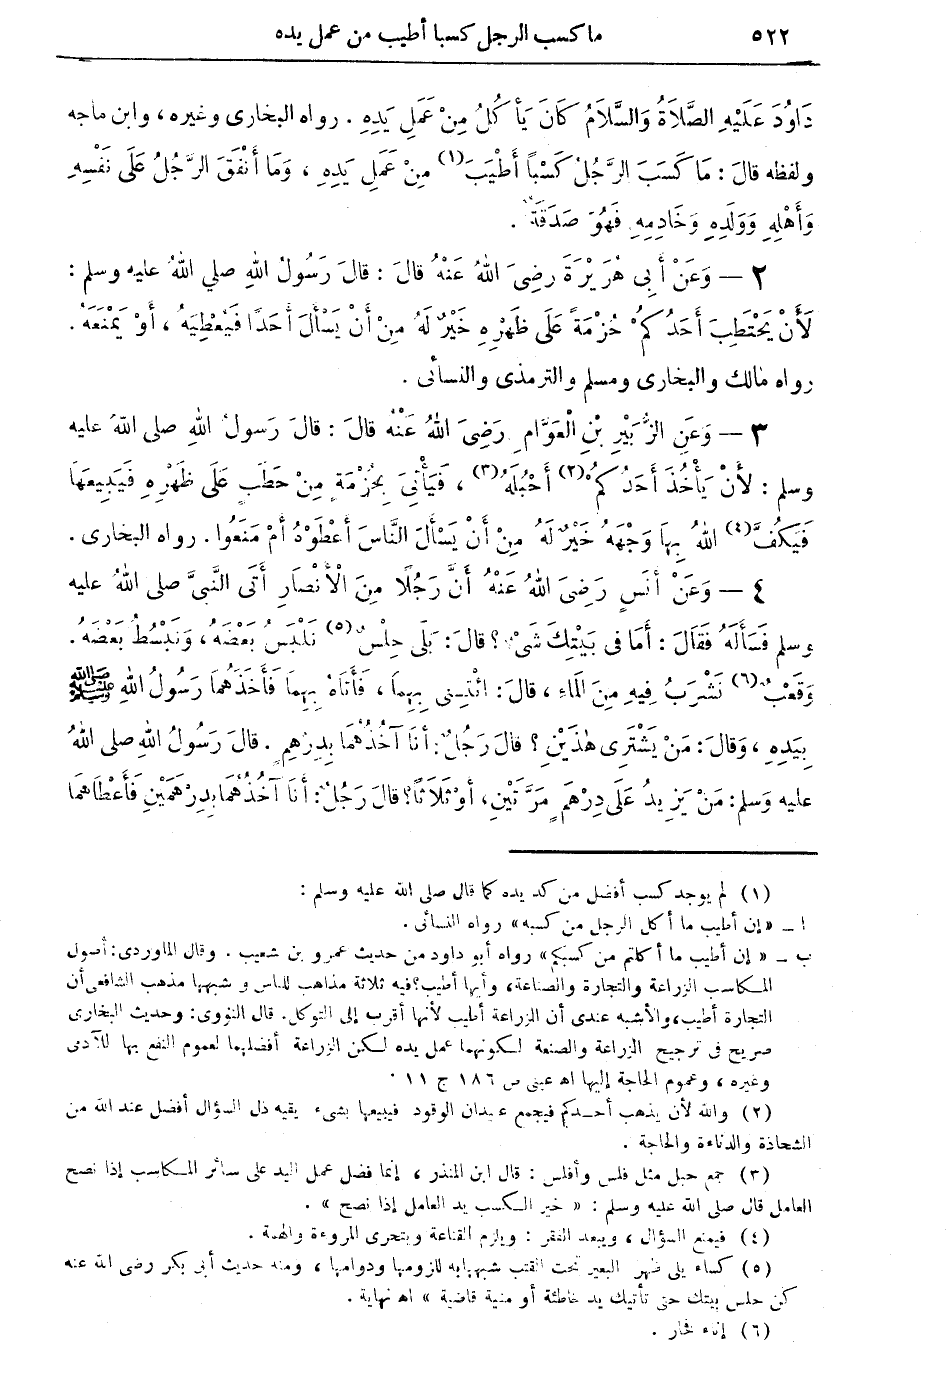 ٥٢٢ ما كسب الرجل كسبا أطيب من عمل يده
دَاوُدَ عَلَيْهِ الصَّلَاةُ وَالسَّلَامُ كَانَ يَأْكُلُ مِنْ عَمَلِ يَدِهِ . رواه البخارى وغيره ، وابن ماجه
ولفظه قالَ : مَا كَسَبَ الرَّجُلُ كَسْبًا أَطْيَبَ (١) مِنْ عَمَلِ يَدِهِ ، وَمَا أَنْفَقَ الرَّجُلُ عَلَى نَفْسِهِ
وَأَهْلِهِ وَوَلَدِهِ وَخَادِمِهِ فَهُوَ صَدَقَةٌ .
٢ — وَعَنْ أَبِى هُرَيْرَةَ رضِىَ اللهُ عَنْهُ قالَ : قالَ رَسُولُ اللهِ صلي اللهُ عليه وسلم :
لَأَنْ يَحْتَطِبَ أَحَدُكُمْ حُزْمَةً عَلَى ظَهْرِهِ خَيْرٌ لَهُ مِنْ أَنْ يَسْأَلَ أَحَدًا فَيُعْطِيَهُ ، أَوْ يَمْنَعَهُ .
رواه مالك والبخارى ومسلم والترمذى والنسائى .
٣ — وَعَنِ الزُّبَيْرِ بْنِ الْعَوَّامِ رَضِىَ اللهُ عَنْهُ قالَ : قالَ رَسولُ اللهِ صلى اللهُ عليه
وسلم : لأَنْ يَأْخُذَ أَحَدُكُمْ (٢) أَحْبُلَهُ (٣) ، فَيَأْتِىَ بِحُزْمَةٍ مِنْ حَطَبٍ عَلَى ظَهْرِهِ فَيَبِيعَهَا
فَيَكُفَّ (٤) اللهُ بِهَا وَجْهَهُ خَيْرٌ لَهُ مِنْ أَنْ يَسْأَلَ النَّاسَ أَعْطَوْهُ أَمْ مَنَعُوا . رواه البخارى .
٤ — وَعَنْ أَنَسٍ رَضِىَ اللهُ عَنْهُ أَنَّ رَجُلًا مِنَ الْأَنْصَارِ أَتَى النَّبِىَّ صلى اللهُ عليه
وسلم فَسَأَلَهُ فَقَالَ : أَمَا فى بَيْتِكَ شَىْءٌ ؟ قالَ : بَلَى حِلْسٌ (٥) نَلْبَسُ بَعْضَهُ ، وَنَبْسُطُ بَعْضَهُ .
وَقَعْبٌ (٦) نَشْرَبُ فِيهِ مِنَ المَاءِ ، قالَ : ائْتِنِى بِهِمَا ، فَأَتَاهُ بِهِمَا فَأَخَذَهُمَا رَسُولُ اللهِ ﷺ
بِيَدِهِ ، وَقالَ : مَنْ يَشْتَرِى هٰذَيْنِ ؟ قالَ رَجُلٌ : أَنَا آخُذُهُمَا بِدِرْهَمٍ . قالَ رَسُولُ اللهِ صلى اللهُ
عليه وَسلم : مَنْ يَزِيدُ عَلَى دِرْهَمٍ مَرَّتَيْنِ ، أَوْ ثَلَاثًا ؟ قالَ رَجُلٌ : أَنَا آخُذُهُمَا بِدِرْهَمَيْنِ فَأَعْطَاهُمَا
(١) لم يوجد كسب أفضل من كد يده كما قال صلى الله عليه وسلم :
ا ــ «إن أطيب ما أكل الرجل من كسبه» رواه النسائى .
ب ــ « إن أطيب ما أكلتم من كسبكم» رواه أبو داود من حديث عمرو بن شعيب . وقال الماوردى : أصول
المكاسب الزراعة والتجارة والصناعة ، وأيها أطيب ؟ فيه ثلاثة مذاهب للناس و شبهها مذهب الشافعى أن
التجارة أطيب ، والأشبه عندى أن الزراعة أطيب لأنها أقرب إلى التوكل . قال النووى : وحديث البخارى
صريح فى ترجيح الزراعة والصنعة لكونهما عمل يده لكن الزراعة أفضلهما لعموم النفع بها للآدى
وغيره ، وعموم الحاجة إليها اه عينى ص ١٨٦ ج ١١ .
(٢) والله لأن يذهب أحدكم فيجمع عيدان الوقود فيبيعها بشىء يقيه ذل السؤال أفضل عند الله من
الشحاذة والدناءة والحاجة .
(٣) جمع حبل مثل فلس وأفلس : قال ابن المنذر ، إنما فضل عمل اليد على سائر المكاسب إذا نصح
العامل قال صلى الله عليه وسلم : « خير الكسب يد العامل إذا نصح » .
(٤) فيمنع السؤال ، ويبعد الفقر : ويلزم القناعة ويتحرى المروءة والهمة .
(٥) كساء يلى ظهر البعير تحت القتب شبهها به للزومها ودوامها ، ومنه حديث أبى بكر رضى الله عنه
كن حلس بيتك حتى تأتيك يد خاطئة أو منية قاضية » اه نهاية .
(٦) إناء فخار .